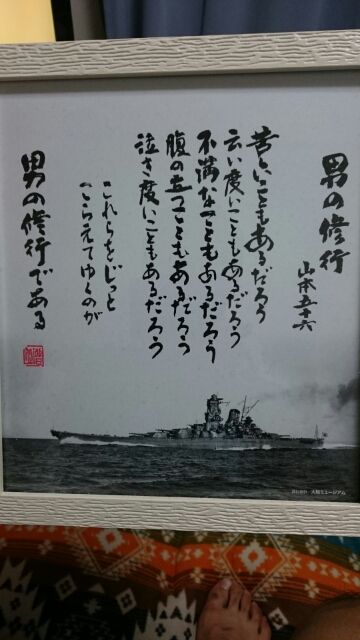 男の修行
山本五十六
苦しいこともあるだろう
云い度いこともあるだろう
不満なこともあるだろう
腹の立つこともあるだろう
泣き度いこともあるだろう
これらをじっと
こらえてゆくのが
男の修行である
大和ミュージアム